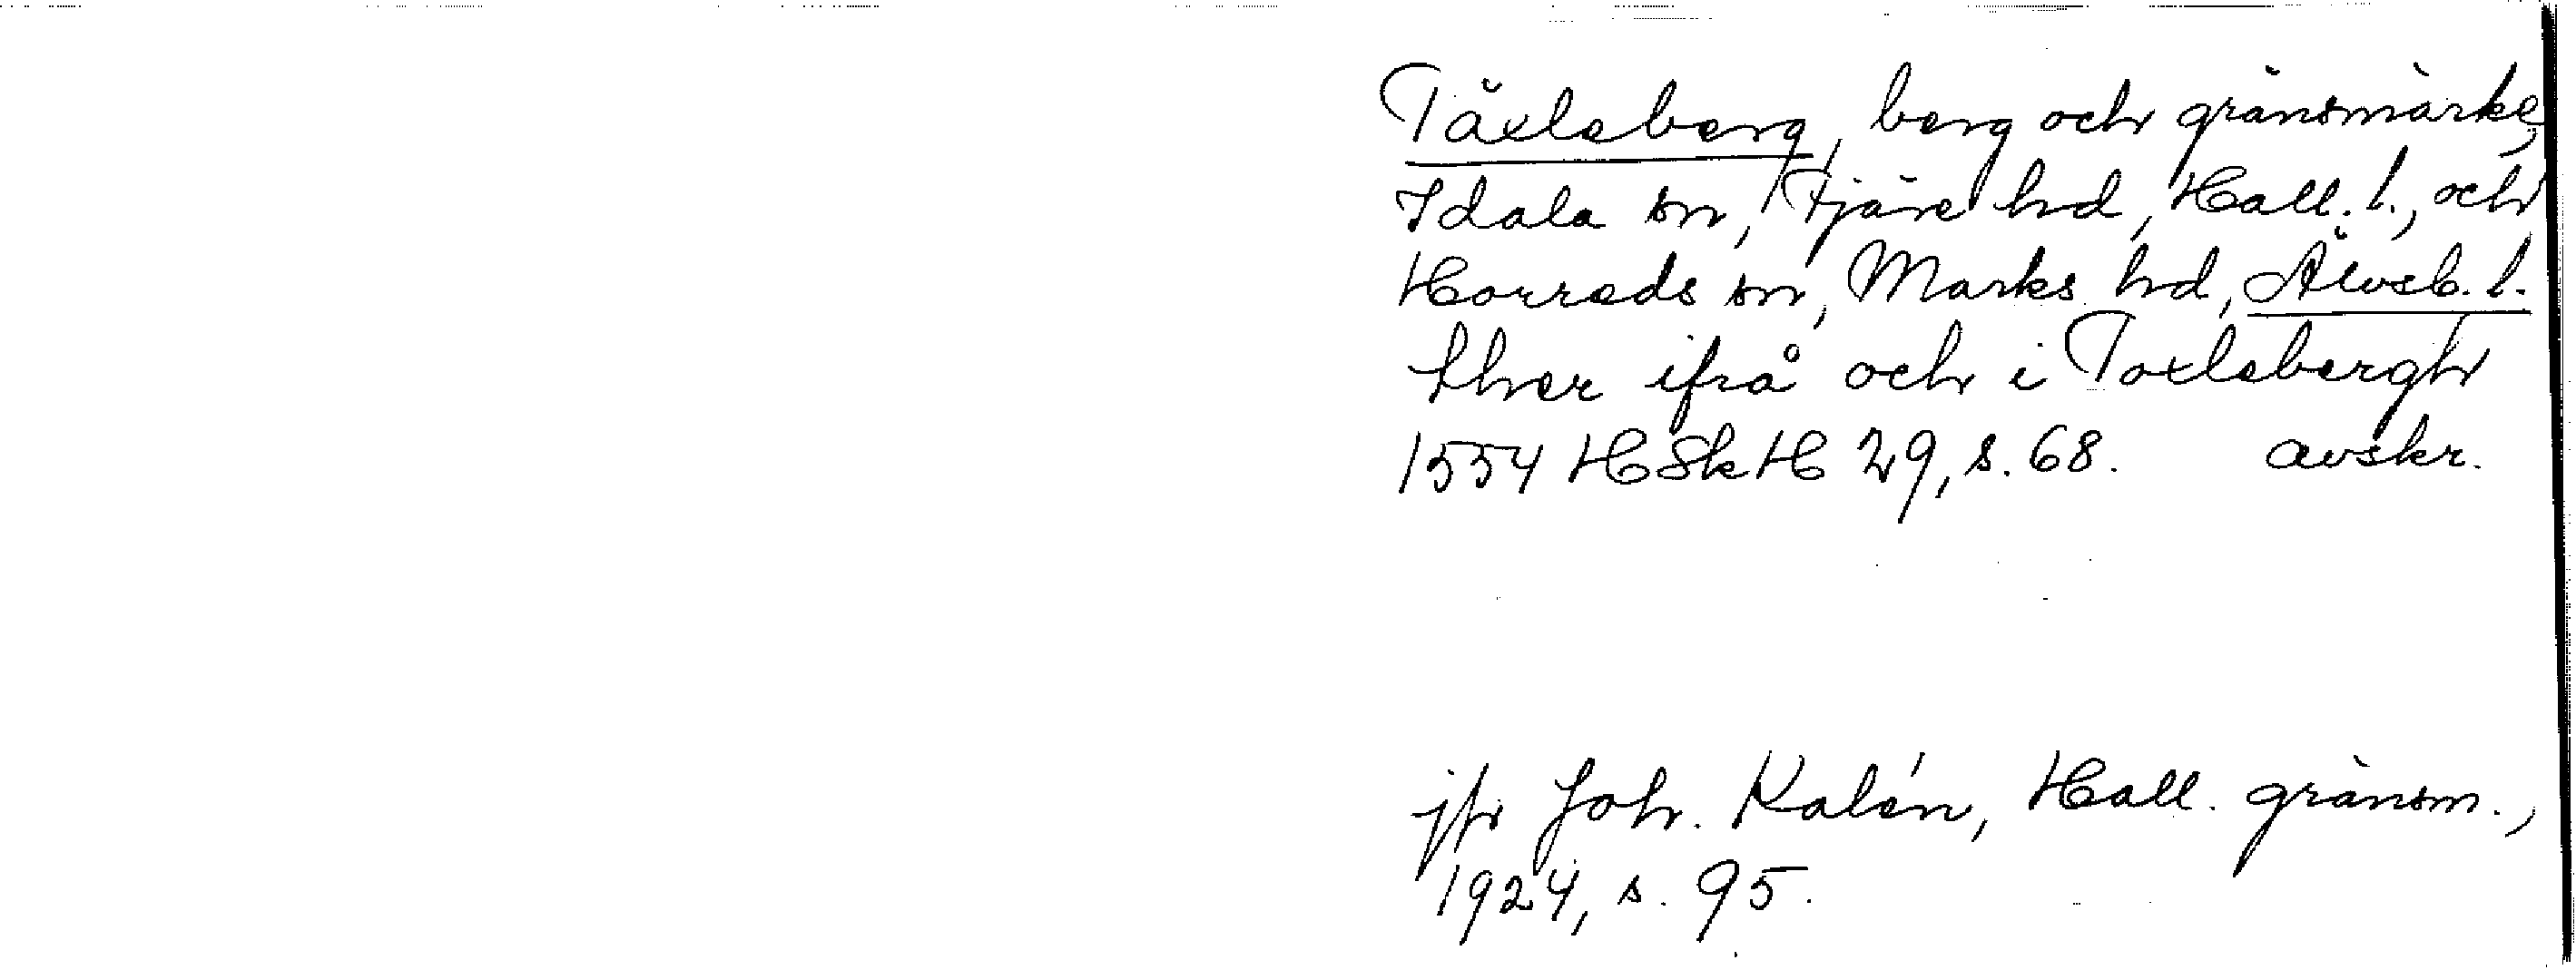 Täxleberg, berg och gränsmärke,
Idala sn, Fjäre hd, Hall. l., och
Horreds sn, Marks hd, Älvsb. l.
ther ifrå och i Toxlebergh
1554 HSkH 29, s. 68. avskr.
jfr Joh. Kalén, Hall. gränsm.,
1924, s. 95.